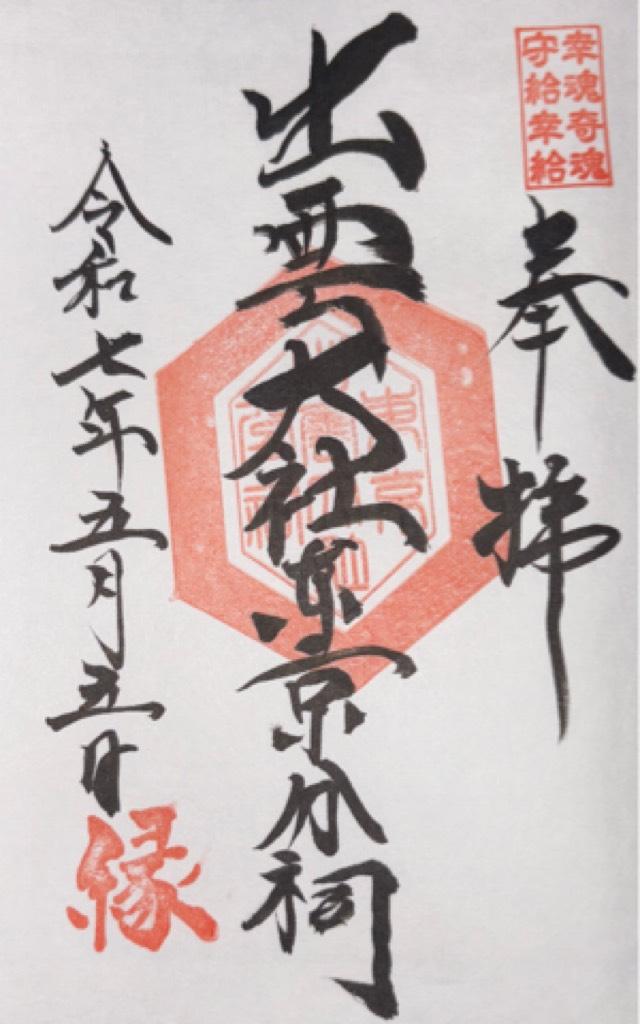 幸魂奇魂
守給幸給
奉拝
出雲大社東京分祠
令和七年五月五日
縁